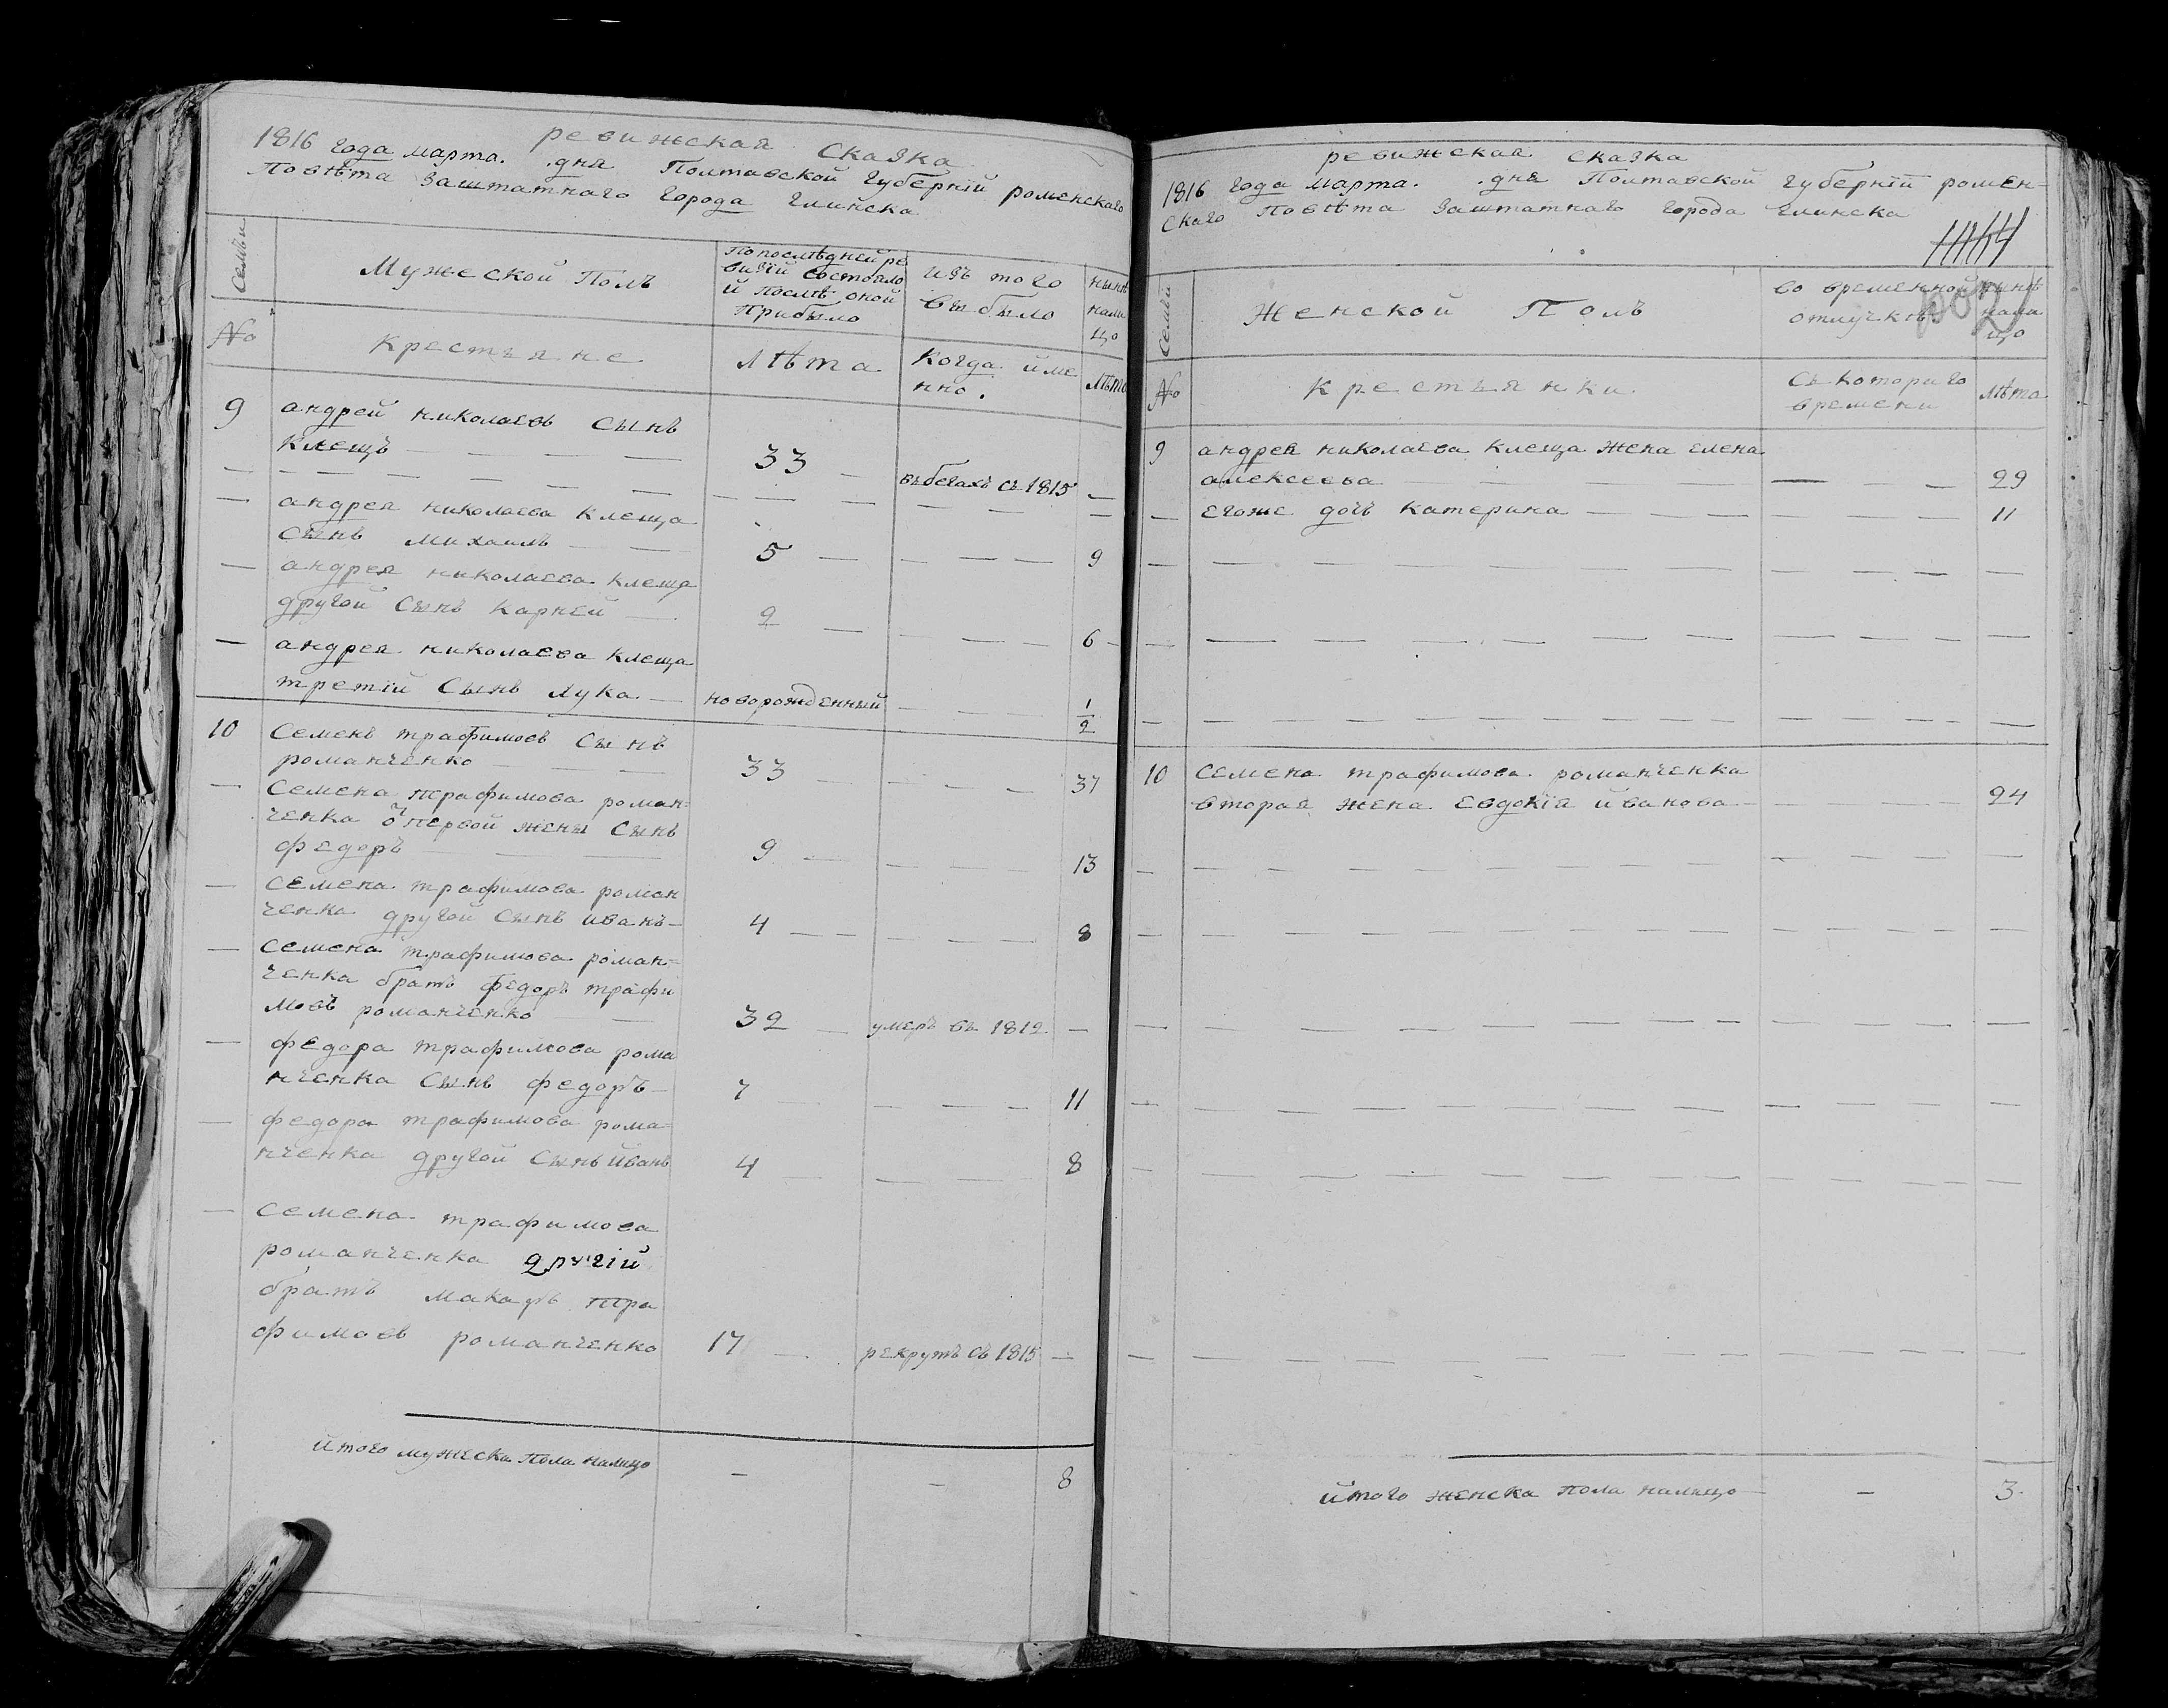 ревижская сказка
1816 года марта. дня Полтавской губернїй роменского
Повѣта Заштатнаго Города Глинска
Семьи
Мужеской Полъ
По последней ре
визїй состояло
й послѣ оной
прибыло
изъ того
выбыло
нынѣ
нали
цо
№
Крестьяне
лѣта
Когда йме
нно.
лѣта
9
андрей николаевъ сынъ
Клещъ
33
въ бегахъ съ 1815
андрея николаева клеща
сынъ михаилъ
5
9
андрея николаева клеща
другой сынъ карней
2
6
андрея николаева клеща
третїй сынъ лука
новорожденный
1/2
10
Семенъ трафимовъ сынъ
романченко
33
37
Семена трафимова роман=
ченка от первой жены сынъ
федоръ
9
13
семена трафимова роман
ченка другой сынъ иванъ
4
8
семена трафимова роман=
ченка братъ федоръ трафи
мовъ романченко
32
умеръ въ 1812
федора трафимова рома
нченка сынъ федоръ
7
11
федора трафимова рома=
нченка другой сынъ йванъ
4
8
семена трафимова
романченка другїй
братъ макаръ тра
фимовъ романченко
17
рекрутъ съ 1815
йтого мужеска пола налицо
8
ревижская сказка
1816 года марта. дня Полтавской губернїй ромен=
ского Повѣта Заштатнаго города Глинска
Семьи
Женской Полъ
во временной
отлучкѣ
нынѣ
нали
цо
№
Крестьянки
съ которого
времени
лѣта
9
андрея николаева клеща жена елена
алексеева
29
егоже дочь катерина
11
10
семена трафимова романченка
вторая жена евдокїя йванова
24
йтого женска пола налицо
3